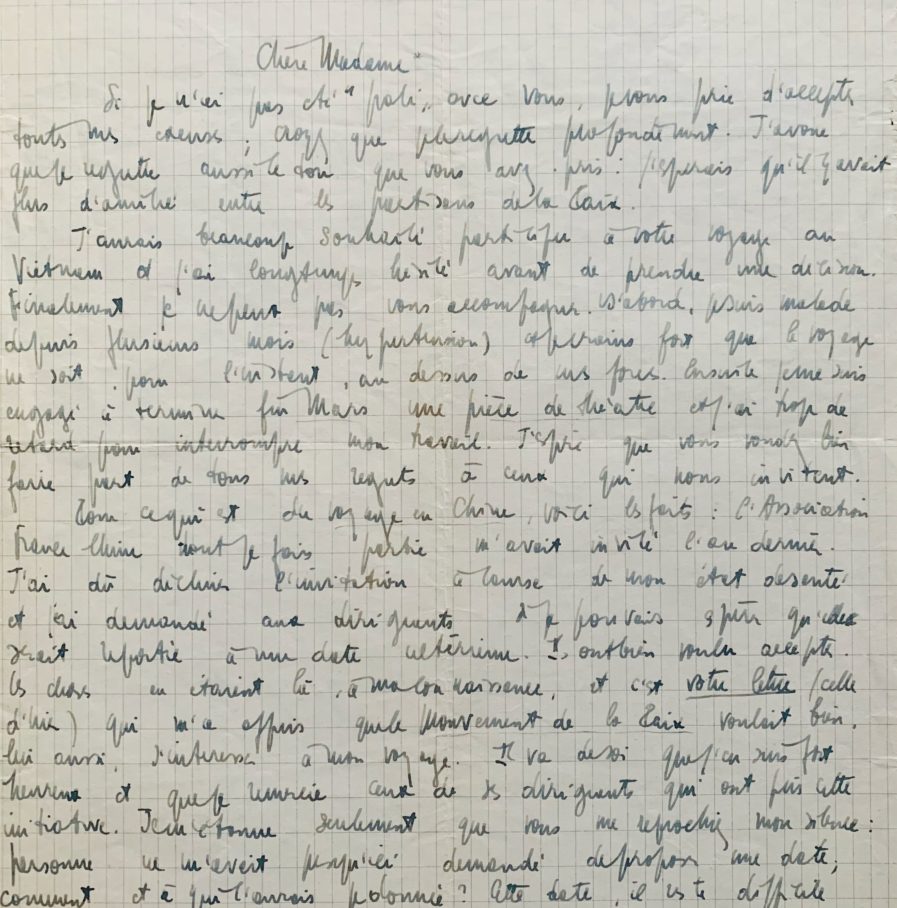 Chère Madame
Si je n'ai pas été "poli" avec vous, je vous prie d'accepter
toutes mes excuses ; croyez que je le regrette profondément. J'avoue
que je regrette aussi le ton que vous avez pris : j'espérais qu'il y avait
plus d'amitié entre les partisans de la Paix.
J'aurais beaucoup souhaité participer à votre voyage au
Vietnam et j'ai longtemps hésité avant de prendre une décision.
Finalement je ne peux pas vous accompagner. D'abord, je suis malade
depuis plusieurs mois (hypertension) et je crains fort que le voyage
ne soit, pour l'instant, au dessus de mes forces. Ensuite je me suis
engagé à terminer fin Mars une pièce de théâtre et j'ai trop de
retard pour interrompre mon travail. J'espère que vous voudrez bien
faire part de tous mes regrets à ceux qui nous invitent.
Pour ce qui est du voyage en Chine, voici les faits : l'Association
France Chine dont je fais partie m'avait invité l'an dernier.
J'ai dû décliner l'invitation à cause de mon état de santé
et j'ai demandé aux dirigeants si je pouvais espérer qu'elle
serait reportée à une date ultérieure. Ils ont bien voulu accepter.
Les choses en étaient là, à ma connaissance, et c'est votre lettre (celle
d'hier) qui m'a appris que le Mouvement de la Paix voulait bien,
lui aussi, s'intéresser à mon voyage. Il va de soi que j'en suis fort
heureux et que je remercie ceux de ses dirigeants qui ont pris cette
initiative. Je m'étonne seulement que vous me reprochiez mon silence :
personne ne m'avait jusqu'ici demandé de proposer une date ;
comment et à qui l'aurais-je donnée ? Cette date, il reste difficile